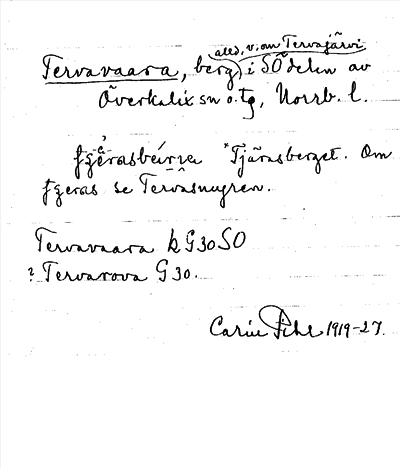 alld. v. om Tervajärvi
Tervavaara, berg i SÖ delen av
Överkalix sn o. tg, Norrb. l.
"Tjärasberget. Om
se Tervasnuyren.
Tervavaara k G30 SO
? Tervarova G 30.
Carin Pihl 1919-27.